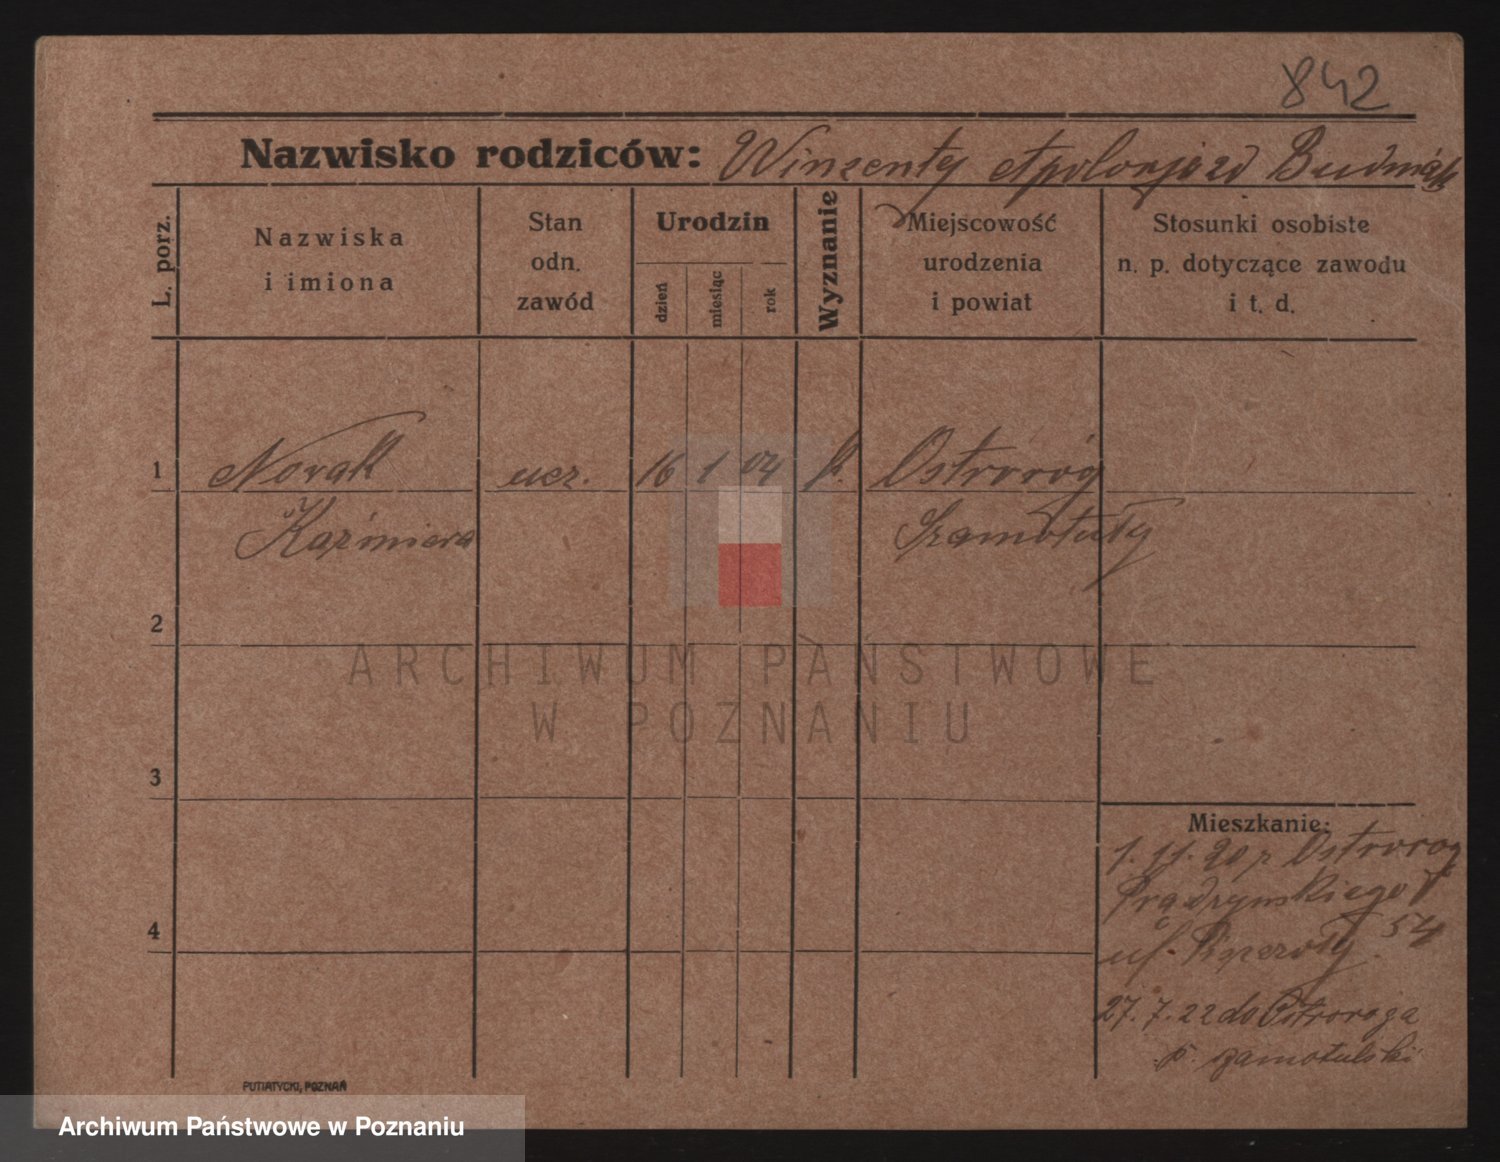 842
Nazwisko rodziców: Winzenty Apolonja zd
L. porz.
Nazwiska
i imiona
Stan
odn.
zawód
Urodzin
dzień
miesiąc
rok
Wyznanie
Miejscowość
urodzenia
i powiat
Stosunki osobiste
n. p. dotyczące zawodu
i t. d.
1 Nowak ucz. 16 1 04 k. Ostroróg
Kazimiera Szamotuły
2
ARCHIWUM PAŃSTWOWE
W POZNANIU
3
Mieszkanie:
1. 11. 20 z Ostroróg
Prądzyńskiego 54
ul.
4
27. 7. 22 do Ostroroga
p. szamotulski
PUTIATYCKI, POZNAŃ
Archiwum Państwowe w Poznaniu